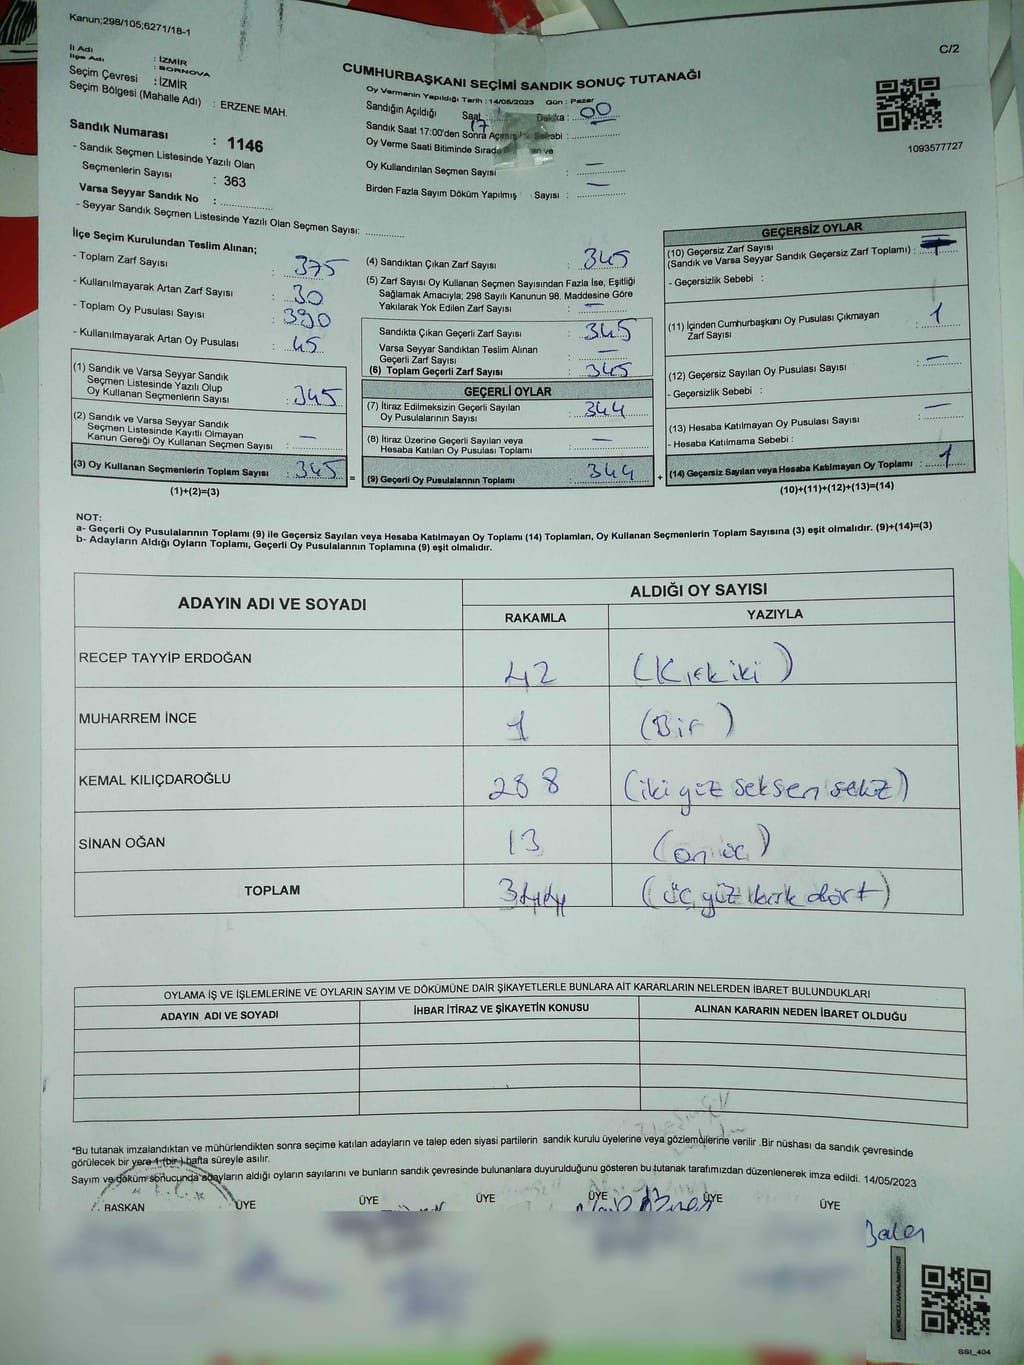 Kanun;298/105;6271/18-1
C/2
İl Adı : İZMİR
İlçe Adı : BORNOVA
Seçim Çevresi : İZMİR
Seçim Bölgesi (Mahalle Adı) : ERZENE MAH.
CUMHURBAŞKANI SEÇİMİ SANDIK SONUÇ TUTANAĞI
Oy Vermenin Yapıldığı Tarih : 14/05/2023 Gün : Pazar
Sandığın Açıldığı Saat : 17 Dakika : 00
Sandık Saat 17:00'den Sonra
Oy Verme Saati Bitiminde
Oy Kullandırılan Seçmen Sayısı : —
Birden Fazla Sayım Döküm Yapılmış Sayısı : —
1093577727
Sandık Numarası : 1146
- Sandık Seçmen Listesinde Yazılı Olan
Seçmenlerin Sayısı : 363
Varsa Seyyar Sandık No :
- Seyyar Sandık Seçmen Listesinde Yazılı Olan Seçmen Sayısı:
İlçe Seçim Kurulundan Teslim Alınan;
- Toplam Zarf Sayısı : 375
- Kullanılmayarak Artan Zarf Sayısı : 30
- Toplam Oy Pusulası Sayısı : 390
- Kullanılmayarak Artan Oy Pusulası : 45
(1) Sandık ve Varsa Seyyar Sandık
Seçmen Listesinde Yazılı Olup
Oy Kullanan Seçmenlerin Sayısı : 345
(2) Sandık ve Varsa Seyyar Sandık
Seçmen Listesinde Kayıtlı Olmayan
Kanun Gereği Oy Kullanan Seçmen Sayısı : —
(3) Oy Kullanan Seçmenlerin Toplam Sayısı : 345
(1)+(2)=(3)
(4) Sandıktan Çıkan Zarf Sayısı : 345
(5) Zarf Sayısı Oy Kullanan Seçmen Sayısından Fazla İse, Eşitliği
Sağlamak Amacıyla; 298 Sayılı Kanunun 98. Maddesine Göre
Yakılarak Yok Edilen Zarf Sayısı : —
Sandıkta Çıkan Geçerli Zarf Sayısı : 345
Varsa Seyyar Sandıktan Teslim Alınan
Geçerli Zarf Sayısı : —
(6) Toplam Geçerli Zarf Sayısı : 345
GEÇERLİ OYLAR
(7) İtiraz Edilmeksizin Geçerli Sayılan
Oy Pusulalarının Sayısı : 344
(8) İtiraz Üzerine Geçerli Sayılan veya
Hesaba Katılan Oy Pusulası Toplamı : —
= (9) Geçerli Oy Pusulalarının Toplamı : 344
GEÇERSİZ OYLAR
(10) Geçersiz Zarf Sayısı
(Sandık ve Varsa Seyyar Sandık Geçersiz Zarf Toplamı) :
- Geçersizlik Sebebi :
(11) İçinden Cumhurbaşkanı Oy Pusulası Çıkmayan
Zarf Sayısı : 1
(12) Geçersiz Sayılan Oy Pusulası Sayısı : —
- Geçersizlik Sebebi :
(13) Hesaba Katılmayan Oy Pusulası Sayısı : —
- Hesaba Katılmama Sebebi :
+ (14) Geçersiz Sayılan veya Hesaba Katılmayan Oy Toplamı : 1
(10)+(11)+(12)+(13)=(14)
NOT:
a- Geçerli Oy Pusulalarının Toplamı (9) ile Geçersiz Sayılan veya Hesaba Katılmayan Oy Toplamı (14) Toplamları, Oy Kullanan Seçmenlerin Toplam Sayısına (3) eşit olmalıdır. (9)+(14)=(3)
b- Adayların Aldığı Oyların Toplamı, Geçerli Oy Pusulalarının Toplamına (9) eşit olmalıdır.
ADAYIN ADI VE SOYADI ALDIĞI OY SAYISI
RAKAMLA YAZIYLA
RECEP TAYYİP ERDOĞAN 42 (Kırkiki)
MUHARREM İNCE 1 (Bir)
KEMAL KILIÇDAROĞLU 288 (iki yüz seksen sekiz)
SİNAN OĞAN 13 (on üç)
TOPLAM 344 (üç yüz kırk dört)
OYLAMA İŞ VE İŞLEMLERİNE VE OYLARIN SAYIM VE DÖKÜMÜNE DAİR ŞİKAYETLERLE BUNLARA AİT KARARLARIN NELERDEN İBARET BULUNDUKLARI
ADAYIN ADI VE SOYADI İHBAR İTİRAZ VE ŞİKAYETİN KONUSU ALINAN KARARIN NEDEN İBARET OLDUĞU
*Bu tutanak imzalandıktan ve mühürlendikten sonra seçime katılan adayların ve talep eden siyasi partilerin sandık kurulu üyelerine veya gözlemcilerine verilir .Bir nüshası da sandık çevresinde
görülecek bir yere 1 (bir) hafta süreyle asılır.
Sayım ve döküm sonucunda adayların aldığı oyların sayılarını ve bunların sandık çevresinde bulunanlara duyurulduğunu gösteren bu tutanak tarafımızdan düzenlenerek imza edildi. 14/05/2023
BAŞKAN ÜYE ÜYE ÜYE ÜYE ÜYE ÜYE
SSI_404